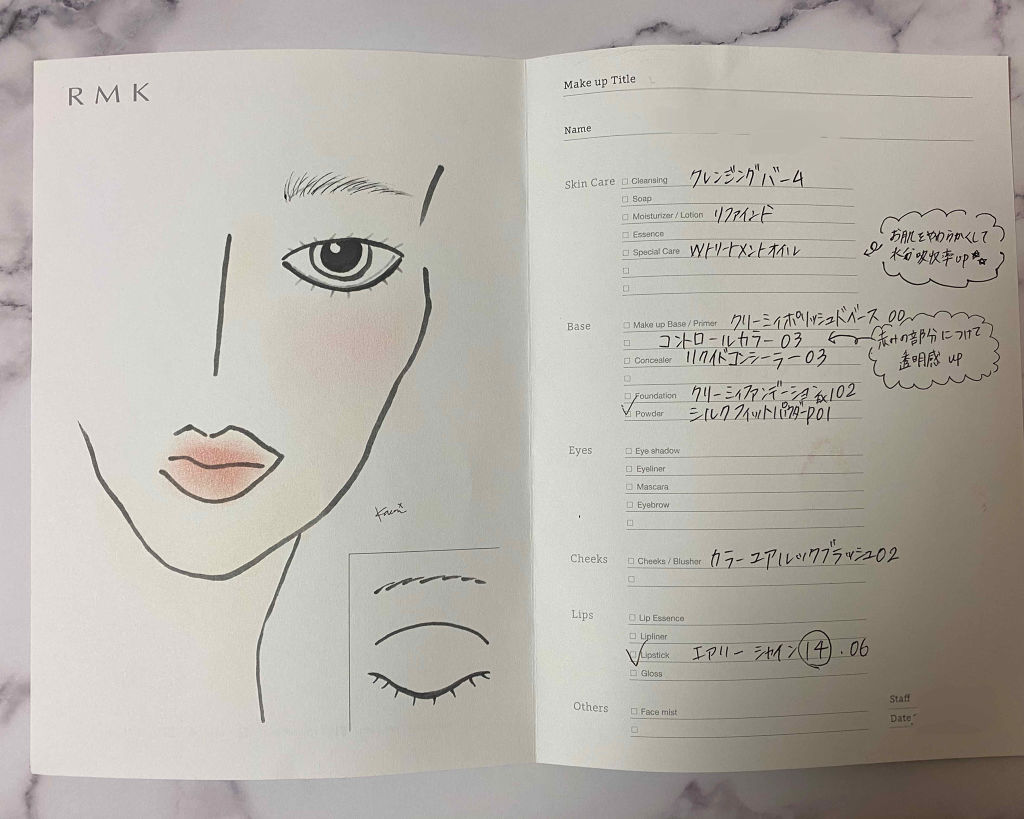 RMK
Make up Title
Name
Skin Care
Cleansing クレンジングバーム
Soap
Moisturizer / Lotion リファインド
Essence
Special Care Wトリートメントオイル
お肌をやわらかくして
水分吸収率up
Base
Make up Base / Primer クリーミィポリッシュドベース 00
コントロールカラー 03
赤みの部分につけて
透明感 up
Concealer リクイドコンシーラー 03
Foundation クリーミィファンデーションEX 102
Powder シルクフィットパウダーP01
Eyes
Eye shadow
Eyeliner
Mascara
Eyebrow
Cheeks
Cheeks / Blusher カラーユアルックブラッシュ02
Lips
Lip Essence
Lipliner
Lipstick エアリーシャイン 14.06
Gloss
Others
Face mist
Staff
Date